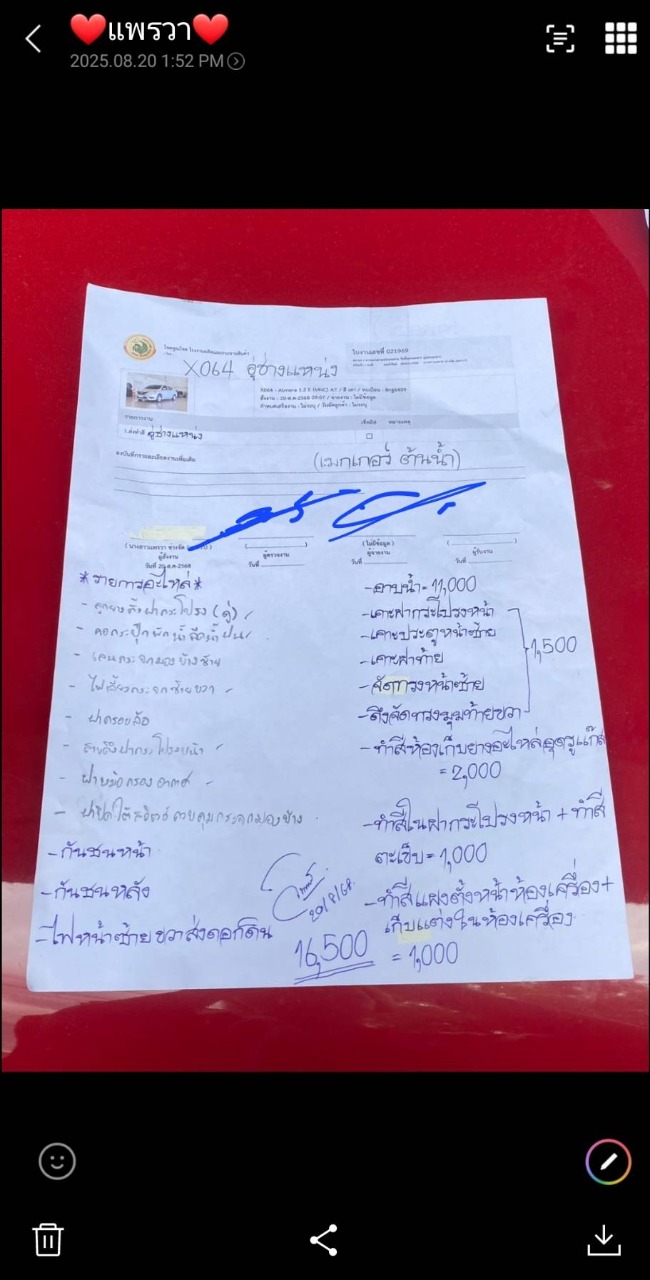 ❤️แพรวา❤️
2025.08.20 1:52 PM
ใบงานเลขที่ 021969
X064 อู่ช่างแหน่ง
รายการงาน
อู่ช่างแหน่ง
(เมกเกอร์ ต้นน้ำ)
ผู้สั่งงาน
ผู้ตรวจงาน
(ไม่มีข้อมูล)
ผู้จ่ายงาน
ผู้รับงาน
วันที่ 20-ส.ค-2568
วันที่
วันที่
วันที่
*รายการอะไหล่*
- ลูกยางฝากระโปรง (คู่)
- คอกระปุกพักน้ำฉีดน้ำฝน
- เลนกระจกมองข้างซ้าย
- ไฟเลี้ยวกระจกซ้ายขวา
- ฝาครอบล้อ
- สายดึงฝากระโปรงหน้า
- ฝาหม้อกรองอากาศ
- ฝาปิดใต้สวิตซ์ควบคุมกระจกมองข้าง
- กันชนหน้า
- กันชนหลัง
- ไฟหน้าซ้ายขวาส่งดอกดิน
- อาบน้ำ = 11,000
- เคาะฝากระโปรงหน้า
- เคาะประตูหน้าซ้าย
- เคาะฝาท้าย
- จัดทรงหน้าซ้าย
- ดึงจัดทรงมุมท้ายขวา
1,500
- ทำสีห้องเก็บยางอะไหล่อุดรูแก๊ส
= 2,000
- ทำสีในฝากระโปรงหน้า + ทำสี
ตะเข็บ = 1,000
- ทำสีแผงตั้งหน้าห้องเครื่อง +
เก็บแต่งในห้องเครื่อง
= 1,000
20/8/68
16,500